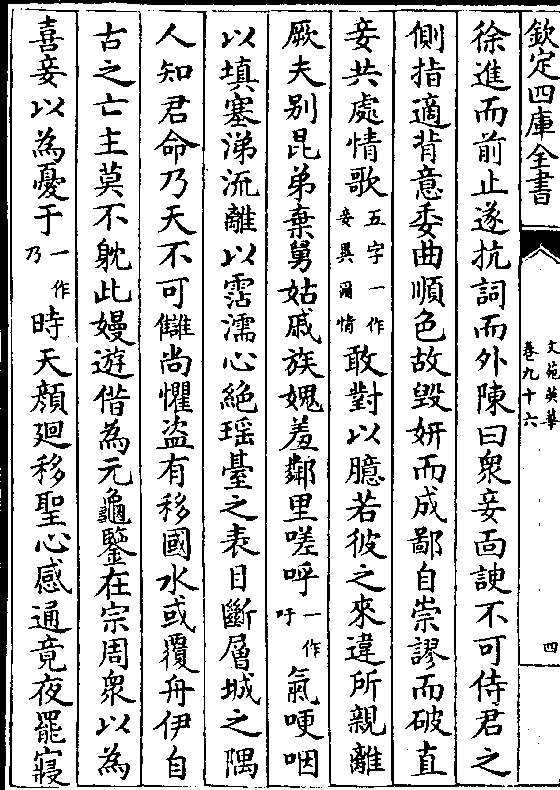 欽定四庫全書
文苑英華
卷九十六
四
徐進而前止遂抗詞而外陳曰衆妾面諛不可侍君之
側指適背意委曲順色故毀妍而成鄙自崇謬而破直
妾共處情歌五字一作妾異爾情敢對以臆若彼之來違所親離
厥夫别昆弟棄舅姑戚族媿羞鄰里嗟呼一作吁氣哽咽
以填塞涕流離以霑濡心絶瑶臺之表目斷層城之隅
人知君命乃天不可讎尚懼盗有移國水或覆舟伊自
古之亡主莫不躭此嫚遊借為元龜鑒在宗周衆以為
喜妾以為憂于一作乃時天顔廻移聖心感通竟夜罷寢